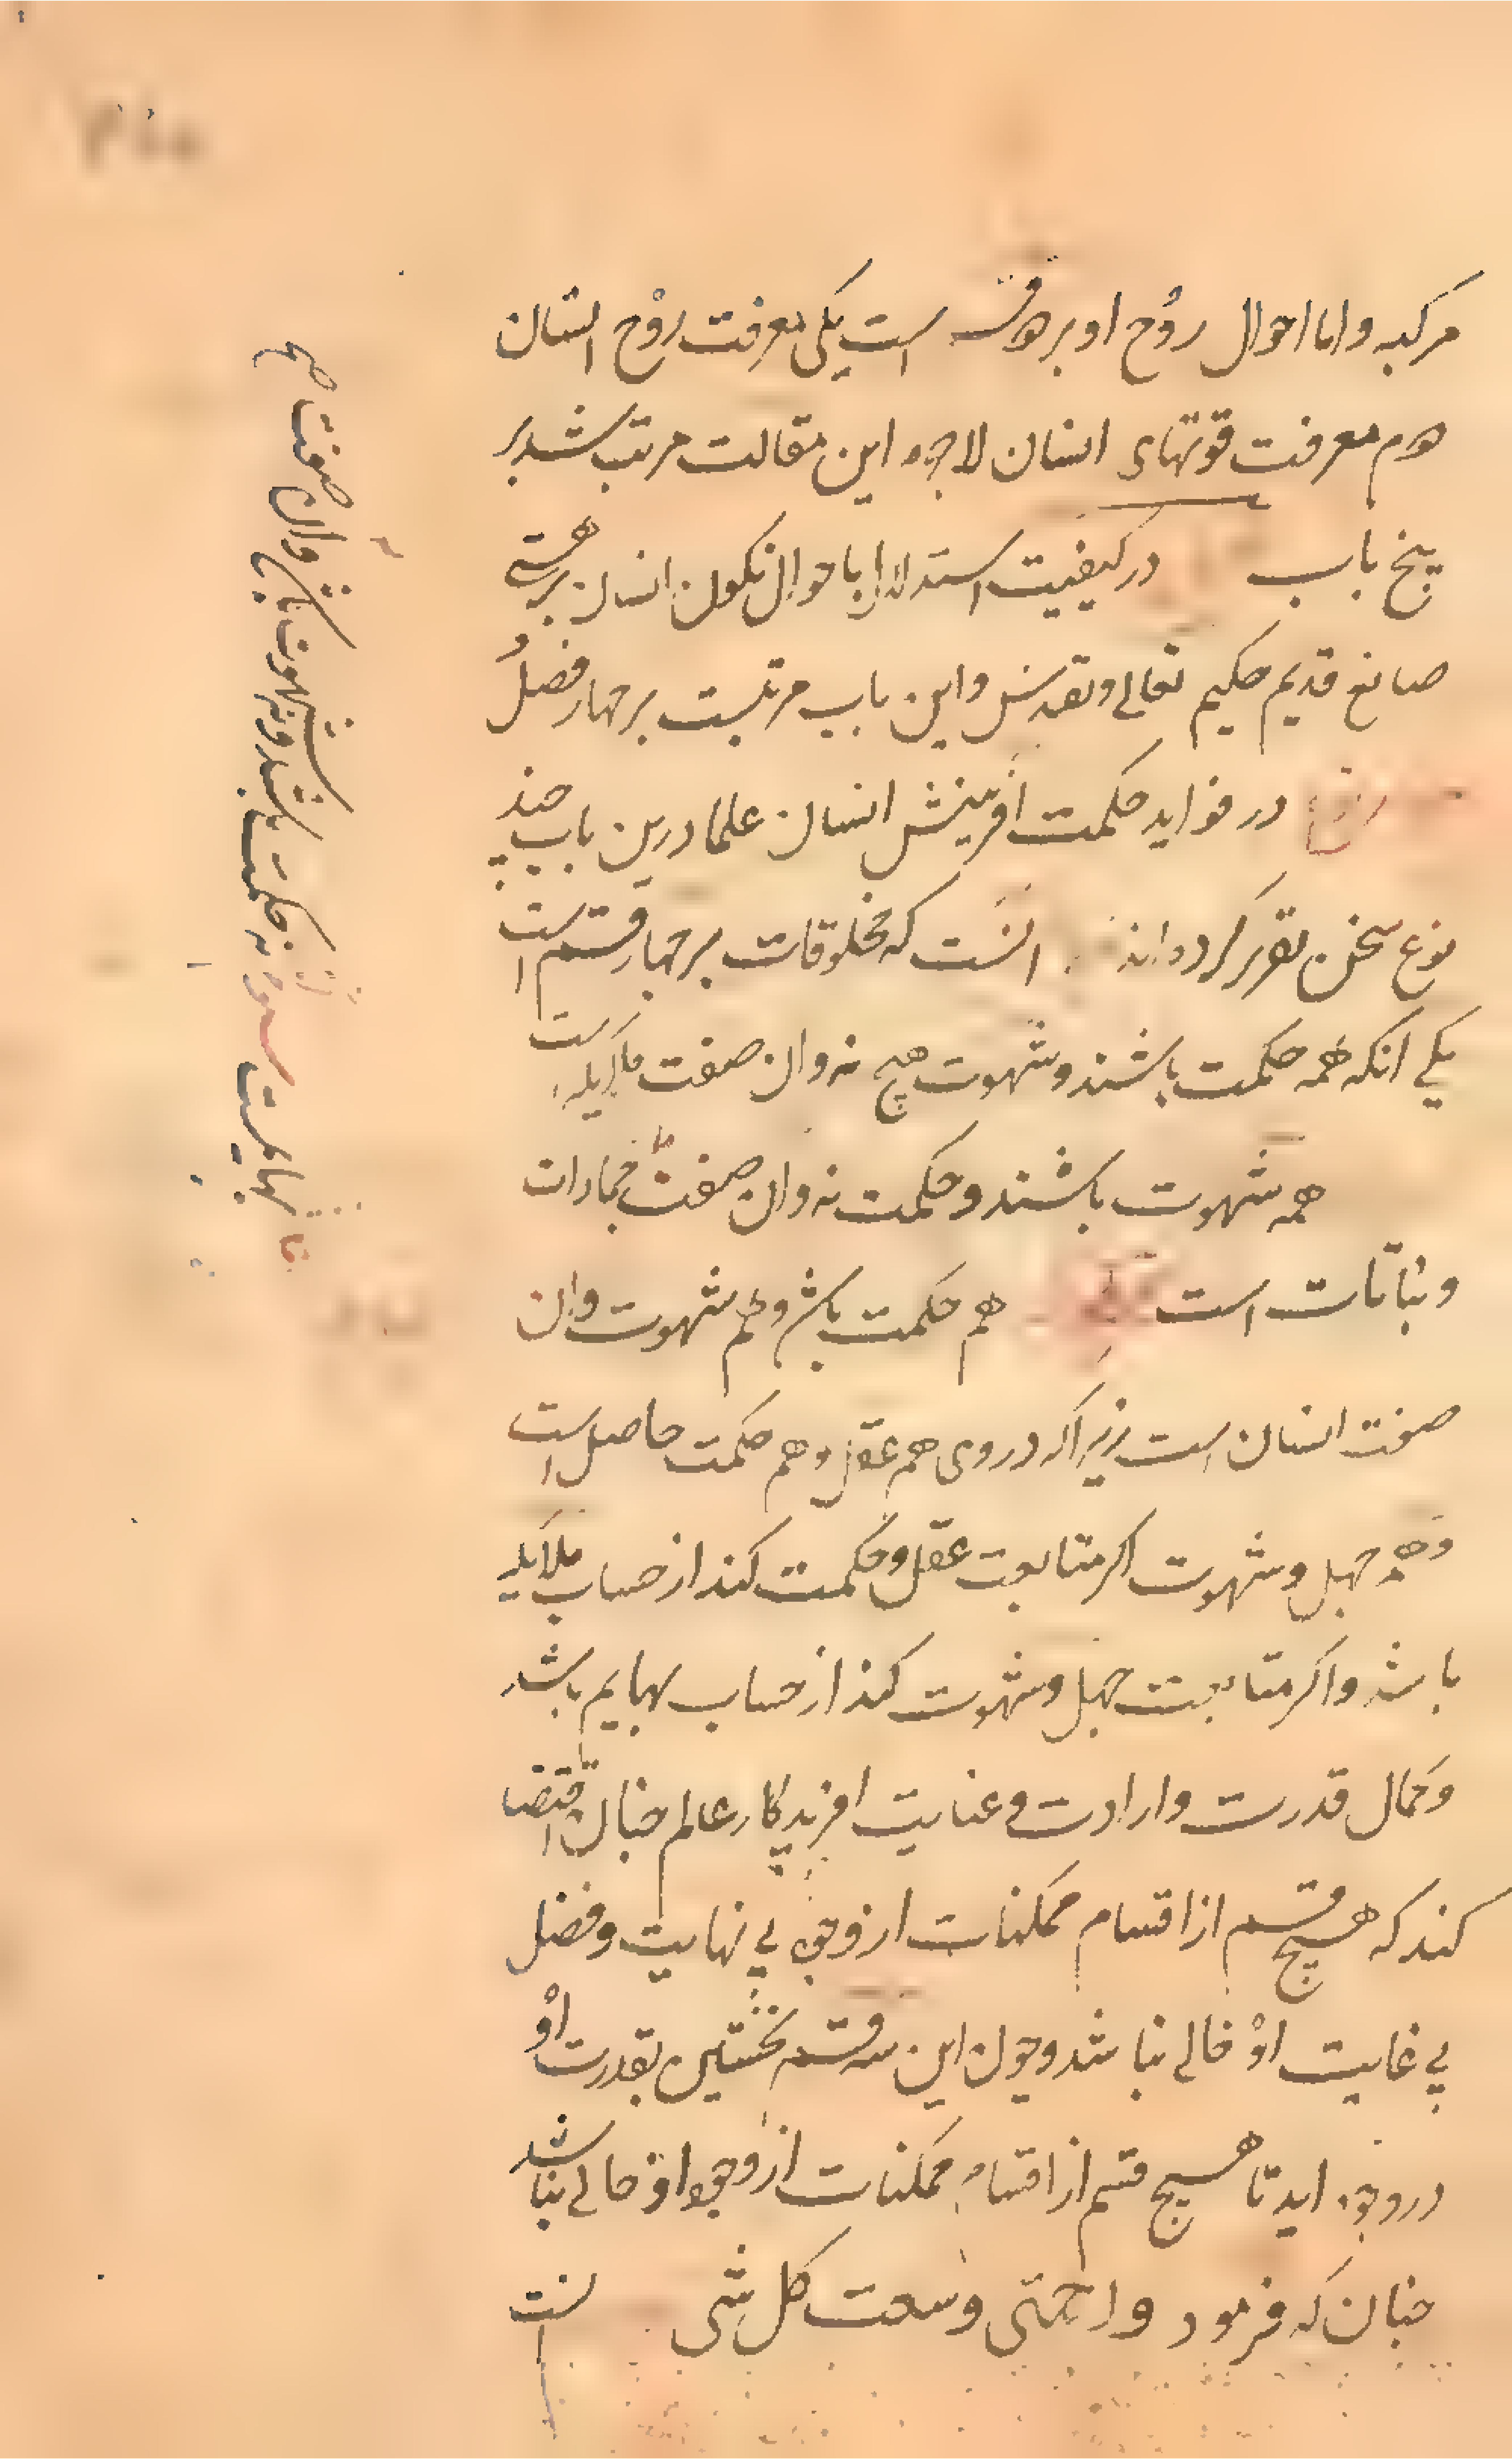 مرکبه واما احوال روح او بر دو قسم است یکی معرفت روح انسان
دوم معرفت قوتهای انسان لاجرم این مقالت مرتب شد بر
پنج باب در کیفیت استدلال باحوال تکون انسان بر هستی
صانع قدیم حکیم تعالی وتقدس واین باب مرتبست بر جهار فصل
در فواید حکمت افرینش انسان علما درین باب جند
نوع سخن تقریر کرده اند انست که مخلوقات بر جهار قسم است
یکی انکه همه حکمت باشند وشهوت هیچ نه وان صفت ملایکه است
همه شهوت باشند وحکمت نه وان صفت جمادات
ونباتات است هم حکمت باشد وهم شهوت وان
صفت انسان است زیرا که در وی هم عقل وهم حکمت حاصل است
وهم جهل وشهوت اکر متابعت عقل وحکمت کند از حساب ملایکه
باشد واکر متابعت جهل وشهوت کند از حساب بهایم باشد
وکمال قدرت وارادت وعنایت افریدکار عالم جنان اقتضا
کند که هیچ قسم از اقسام ممکنات از وجود بی نهایت وفضل
بی غایت او خالی نباشد وجون این سه قسم نخستین بقدرت او
در وجود اید تا هیچ قسم از اقسام ممکنات از وجود او خالی نباشد
جنان که فرمود ورحمتی وسعت کل شی انست